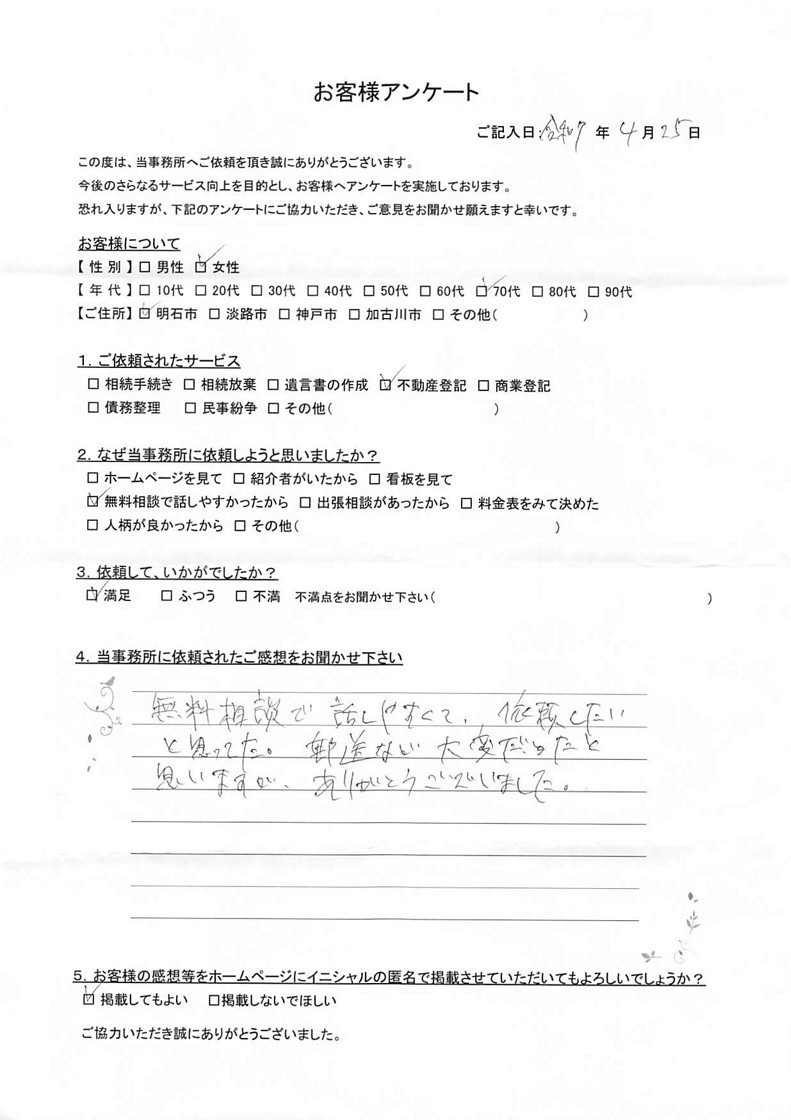 お客様アンケート
ご記入日:令和7年4月25日
この度は、当事務所へご依頼を頂き誠にありがとうございます。
今後のさらなるサービス向上を目的とし、お客様へアンケートを実施しております。
恐れ入りますが、下記のアンケートにご協力いただき、ご意見をお聞かせ願えますと幸いです。
お客様について
【性別】□ 男性 ☑ 女性
【年代】□ 10代 □ 20代 □ 30代 □ 40代 □ 50代 □ 60代 ☑ 70代 □ 80代 □ 90代
【ご住所】☑ 明石市 □ 淡路市 □ 神戸市 □ 加古川市 □ その他( )
1. ご依頼されたサービス
□ 相続手続き □ 相続放棄 □ 遺言書の作成 ☑ 不動産登記 □ 商業登記
□ 債務整理 □ 民事紛争 □ その他( )
2. なぜ当事務所に依頼しようと思いましたか？
□ ホームページを見て □ 紹介者がいたから □ 看板を見て
☑ 無料相談で話しやすかったから □ 出張相談があったから □ 料金表をみて決めた
□ 人柄が良かったから □ その他( )
3. 依頼して、いかがでしたか？
☑ 満足 □ ふつう □ 不満 不満点をお聞かせ下さい( )
4. 当事務所に依頼されたご感想をお聞かせ下さい
無料相談で話しやすくて、依頼したい
と思ってた。郵送など大変だったと
思いますが、ありがとうございました。
5. お客様の感想等をホームページにイニシャルの匿名で掲載させていただいてもよろしいでしょうか？
☑ 掲載してもよい □掲載しないでほしい
ご協力いただき誠にありがとうございました。